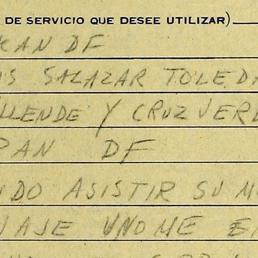 DE SERVICIO QUE DESEE UTILIZAR)
CAN DF
AS SALAZAR TOLEDA
LLENDE Y CRUZ VER
PAN DF
NDO ASISTIR SU M
NAJE UNOME E